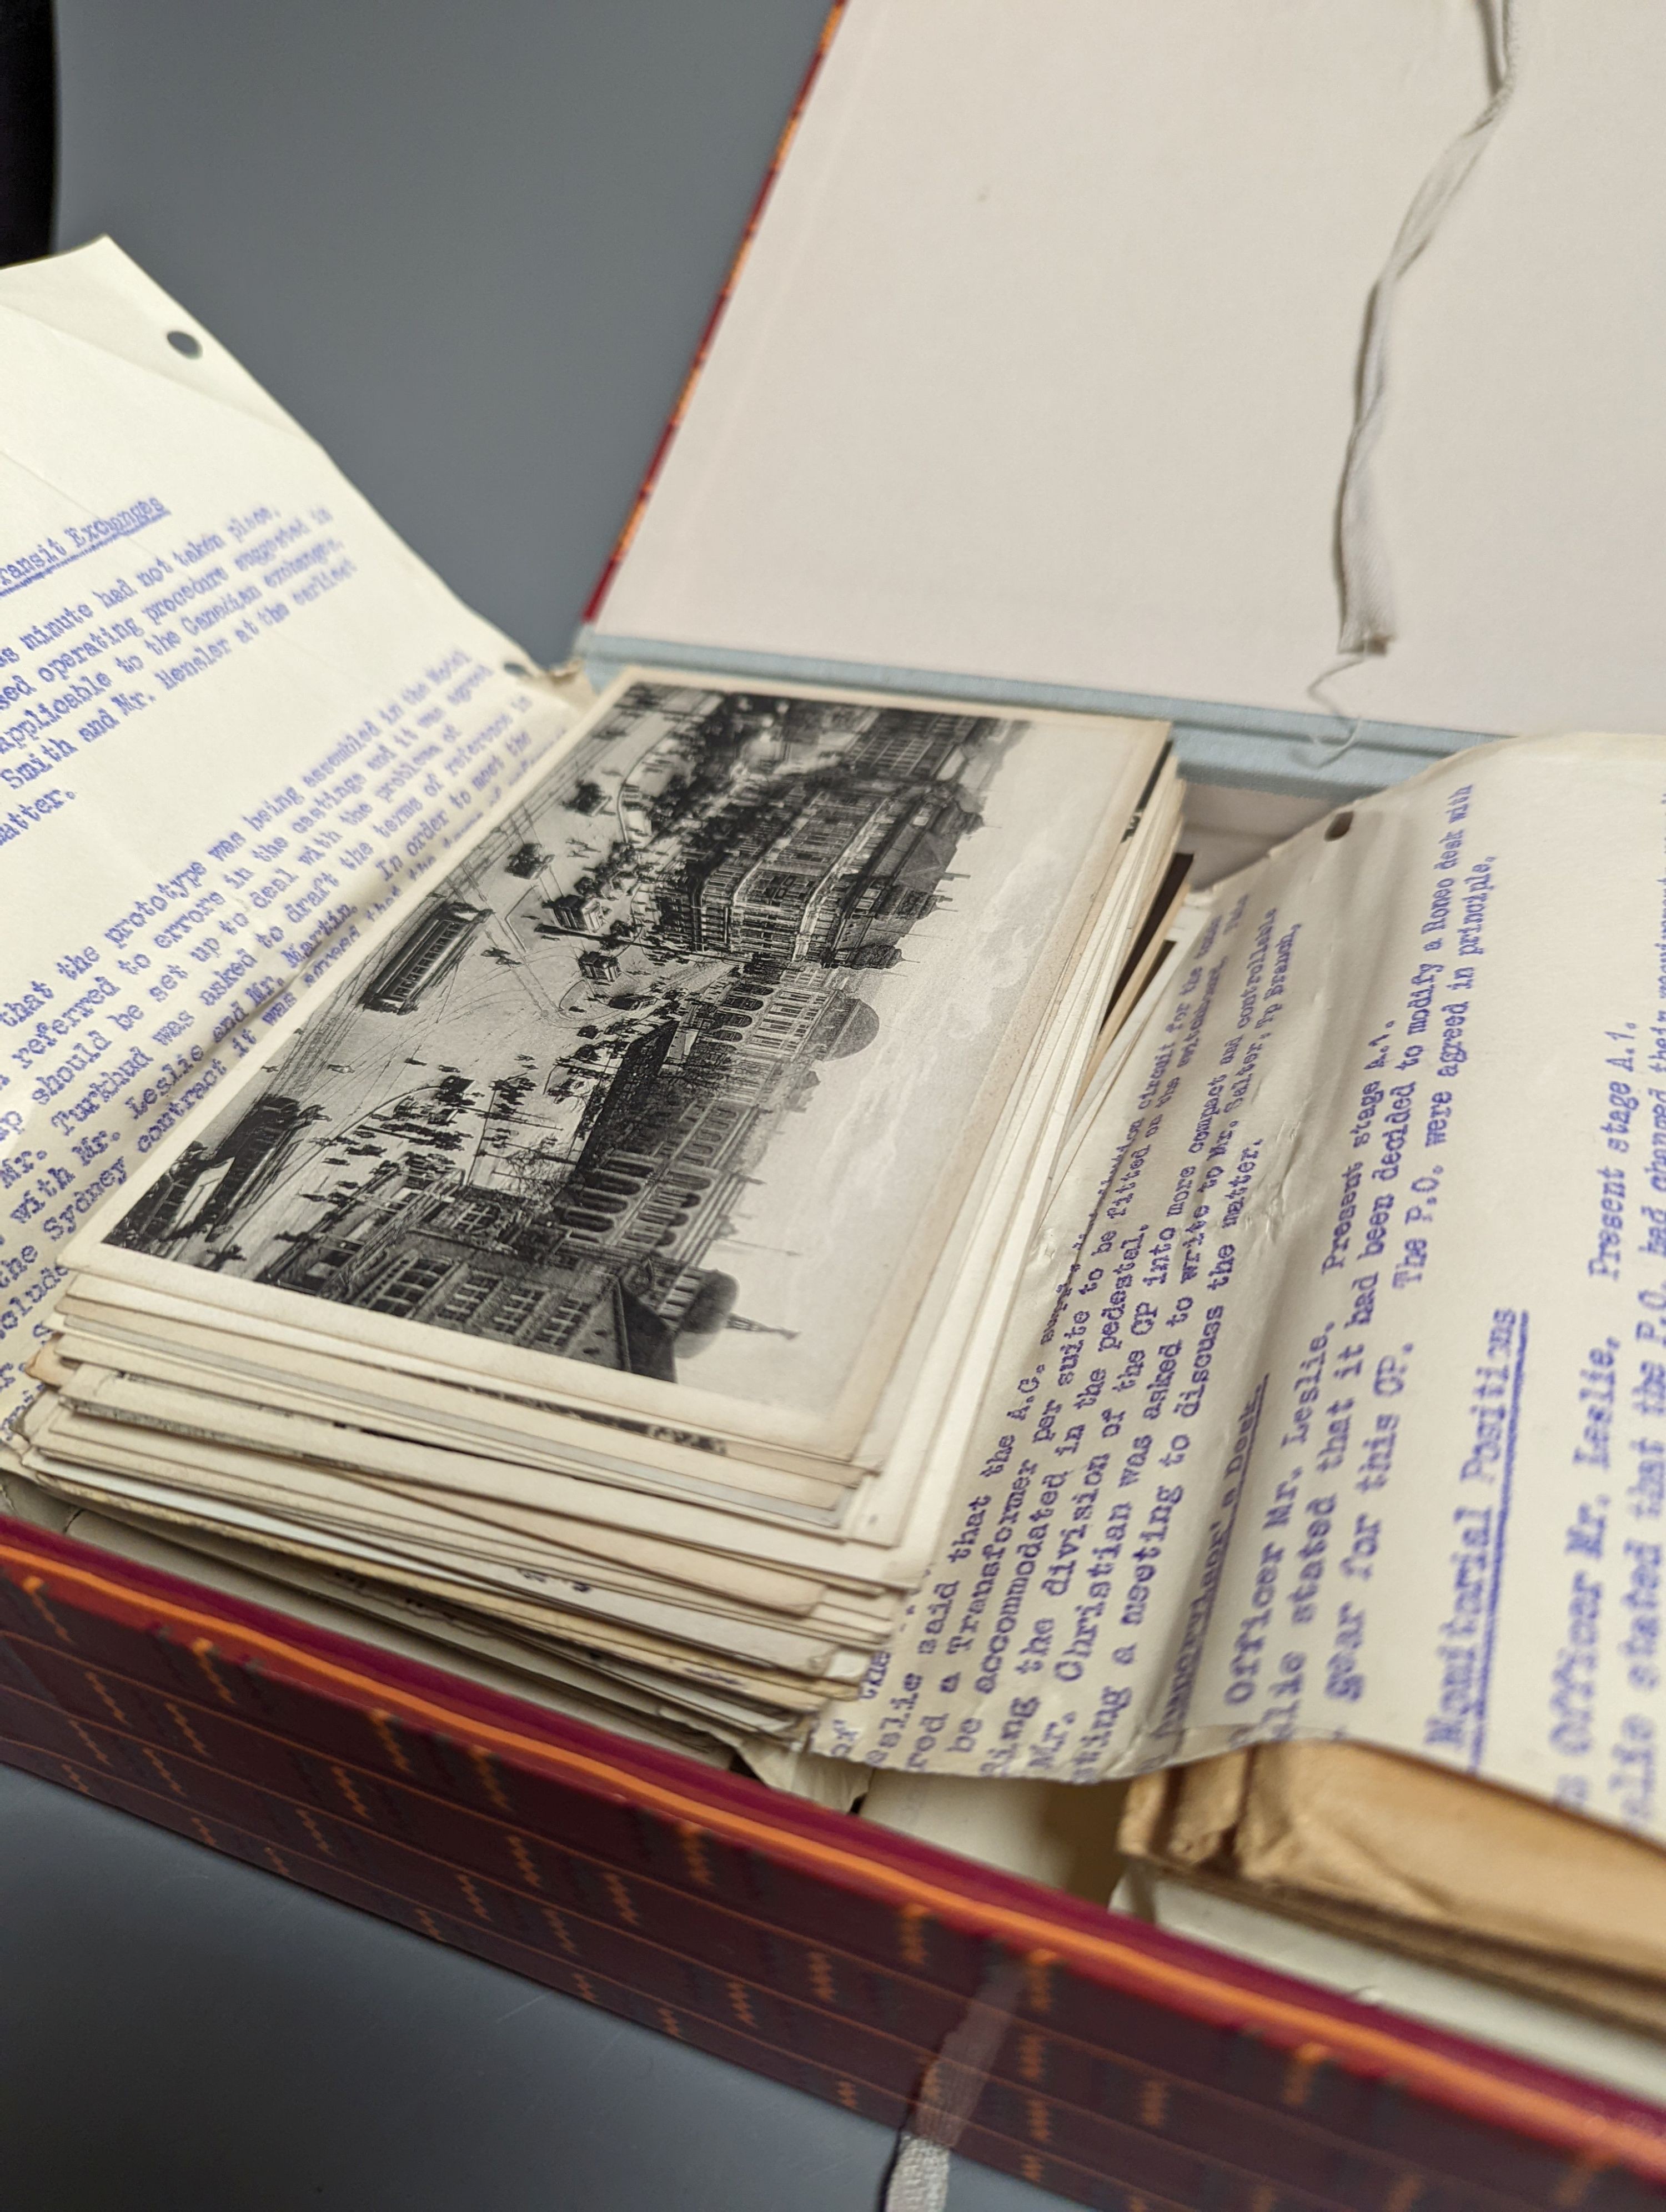 ransit Exchanges
s minute had not taken place,
sed operating procedure suggested in
applicable to the Canadian exchange.
Smith and Mr. Hensler at the earliest
atter.
that the prototype was being assembled in the Model
referred to errors in the castings and it was agreed
up should be set up to deal with the problems of
Mr. Turkhud was asked to draft the terms of reference in
with Mr. Leslie and Mr. Martin. In order to meet the
the Sydney contract it was agreed that the
clude
of the
eslie said that the A.C. distribution circuit for the
red a Transformer per suite to be fitted on the switchboard. This
be accommodated in the pedestal.
ing the division of the OP into more compact and controllable
Mr. Christian was asked to write to Mr. Salter, Tp Branch,
sting a meeting to discuss the matter.
Supervisor's Desk.
Officer Mr. Leslie. Present stage A.1.
lie stated that it had been decided to modify a Roneo desk with
gear for this OP. The P.O. were agreed in principle.
Monitorial Positions
Officer Mr. Leslie. Present stage A.1.
slie stated that the P.O. had changed their